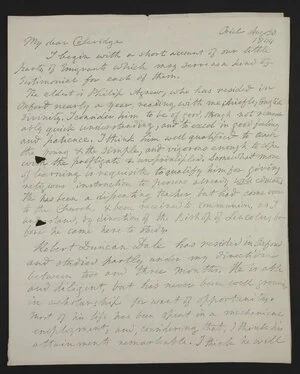 Oriel Aug 30
1844
My dear Coleridge
I begin with a short account of our little
party of Emigrants which may serve as a kind of
Testimonies for each of them.
The eldest is Philip Agnew, who has resided in
Oxford nearly a year, reading with me chiefly English
divinity. I consider him to be of good though not remark
ably quick understanding, and to excel in good feeling
and patience. I think him well qualified to teach
the young or the simple, and vigorous enough to
the profligate & unprincipled. Somewhat more
of learning is requisite to qualify him for giving
religious instruction to persons already
He has been a dissenting teacher but had come over
to the Church, & been received to communion, as I
by direction of the Bishop of Lincoln, be
fore he came here to study.
Robert Duncan Dale has resided in Oxford
and studied partly under my direction
between two and three months. He is able
and diligent, but has never been well ground
in scholarship for want of opportunity.
Most of his life has been spent in a mechanical
employment, and, considering that, I think his
attainments remarkable. I think he will